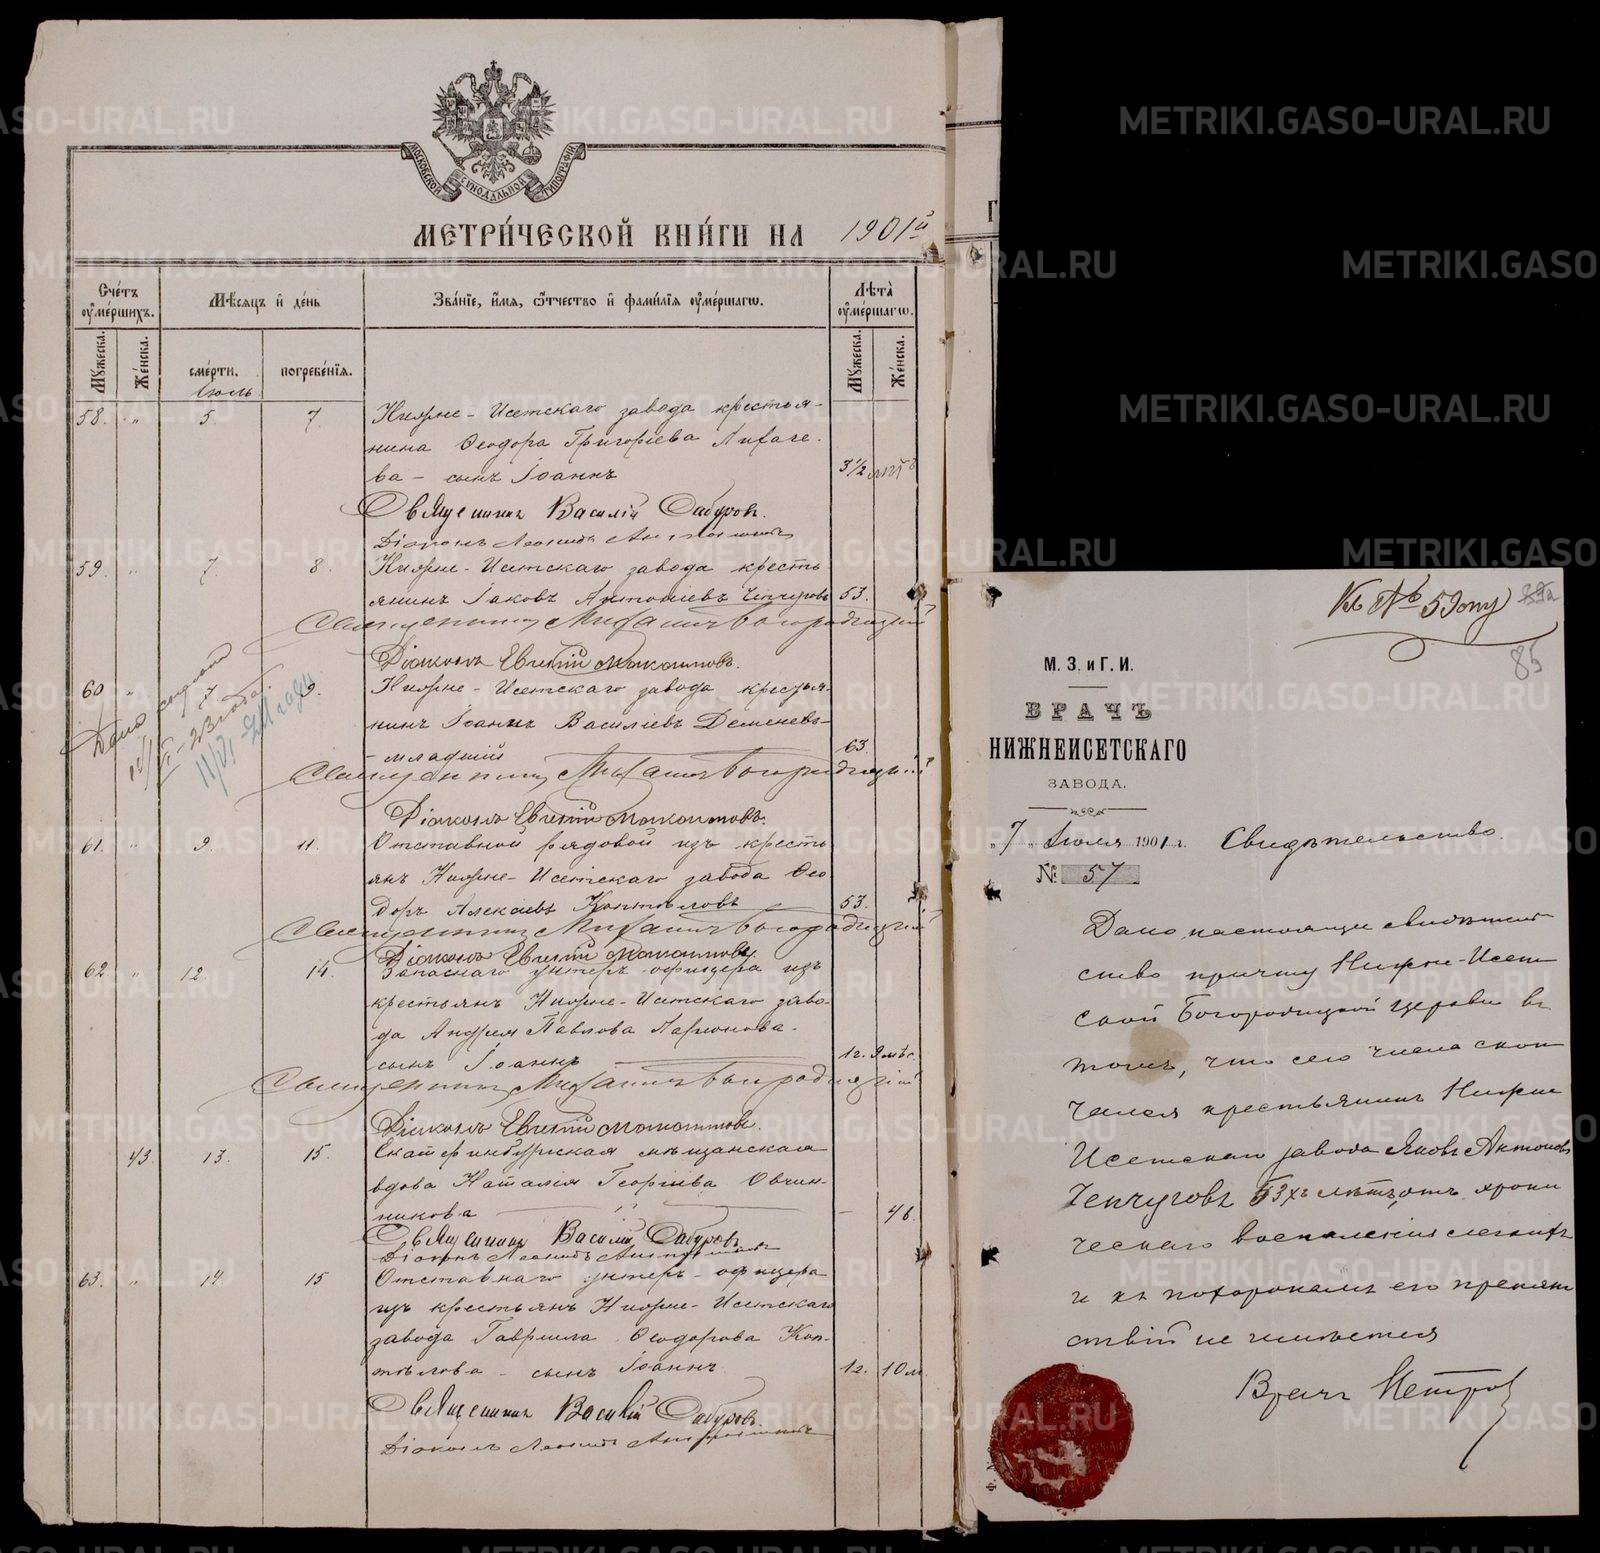 МОСКОВСКОЙ СѴНОДАЛЬНОЙ ТИПОГРАФІИ
МЕТРИ́ЧЕСКОЙ КНИ́ГИ НА 1901й
Сче́тъ оу҆ме́ршихъ.
Мѣ́сяцъ и҆ де́нь
Зва́нїе, и҆́мѧ, ѻ҆́тчество и҆ фами́лїѧ оу҆ме́ршагѡ.
Лѣ́та оу҆ме́ршагѡ.
Мꙋ́жеска.
Же́нска.
сме́рти.
погребе́нїѧ.
Мꙋ́жеска.
Же́нска.
Іюль
58. " 5. 7. Нижне-Исетскаго завода крестья-
нина Ѳеодора Григоріева
ва - сынъ Іоаннъ 3 1/2
Священникъ Василій Сабуровъ.
Діаконъ Леонидъ
59. " 7. 8. Нижне-Исетскаго завода кресть
янинъ Іаковъ Антоніевъ Чепчуговъ 53.
Священникъ Михаилъ Богородицкій
Діаконъ Евгеній
60 " 7. 9. Нижне-Исетскаго завода крестья-
нинъ Іоаннъ Василіевъ Деменевъ-
- младшій 63.
Священникъ Михаилъ Богородицкій
Діаконъ Евгеній
61. " 9. 11. Отставной рядовой изъ кресть
янъ Нижне-Исетскаго завода Ѳео
доръ Алексіевъ Коптѣловъ 53.
Священникъ Михаилъ Богородицкій
Діаконъ Евгеній
62. " 12. 14. Запаснаго унтеръ-офицера изъ
крестьянъ Нижне-Исетскаго заво-
да Андрея Павлова Ларионова-
сынъ Іоаннъ 1г. 9 мѣс.
Священникъ Михаилъ Богородицкій
Діаконъ Евгеній
43. 13. 15. Екатеринбургская мѣщанская
вдова Наталія Георгіева Овчин-
никова - 46.
Священникъ Василій Сабуровъ
Діаконъ Леонидъ
63. " 14. 15 Отставнаго унтеръ-офицера
изъ крестьянъ Нижне-Исетскаго
завода Гавриила Ѳеодорова Коп-
тѣлова - сынъ Іоаннъ 1г. 10 м.
Священникъ Василій Сабуровъ.
Діаконъ Леонидъ
Къ № 59ому
85
М. З. и Г. И.
ВРАЧЪ
НИЖНЕИСЕТСКАГО
ЗАВОДА.
"7" Іюля 1901 г. Свидѣтельство.
№ 57
Дано настоящее свидѣтель
ство причту Нижне-Исет
ской Богородицкой церкви въ
томъ, что сего числа скон
чался крестьянинъ Нижне
Исетскаго завода Яковъ Антоновъ
Чепчуговъ 53хъ лѣтъ, отъ хрони
ческаго воспаленія легкихъ
и къ похоронамъ его препят
ствій не имѣется
Врачъ Петров
METRIKI.GASO-URAL.RU